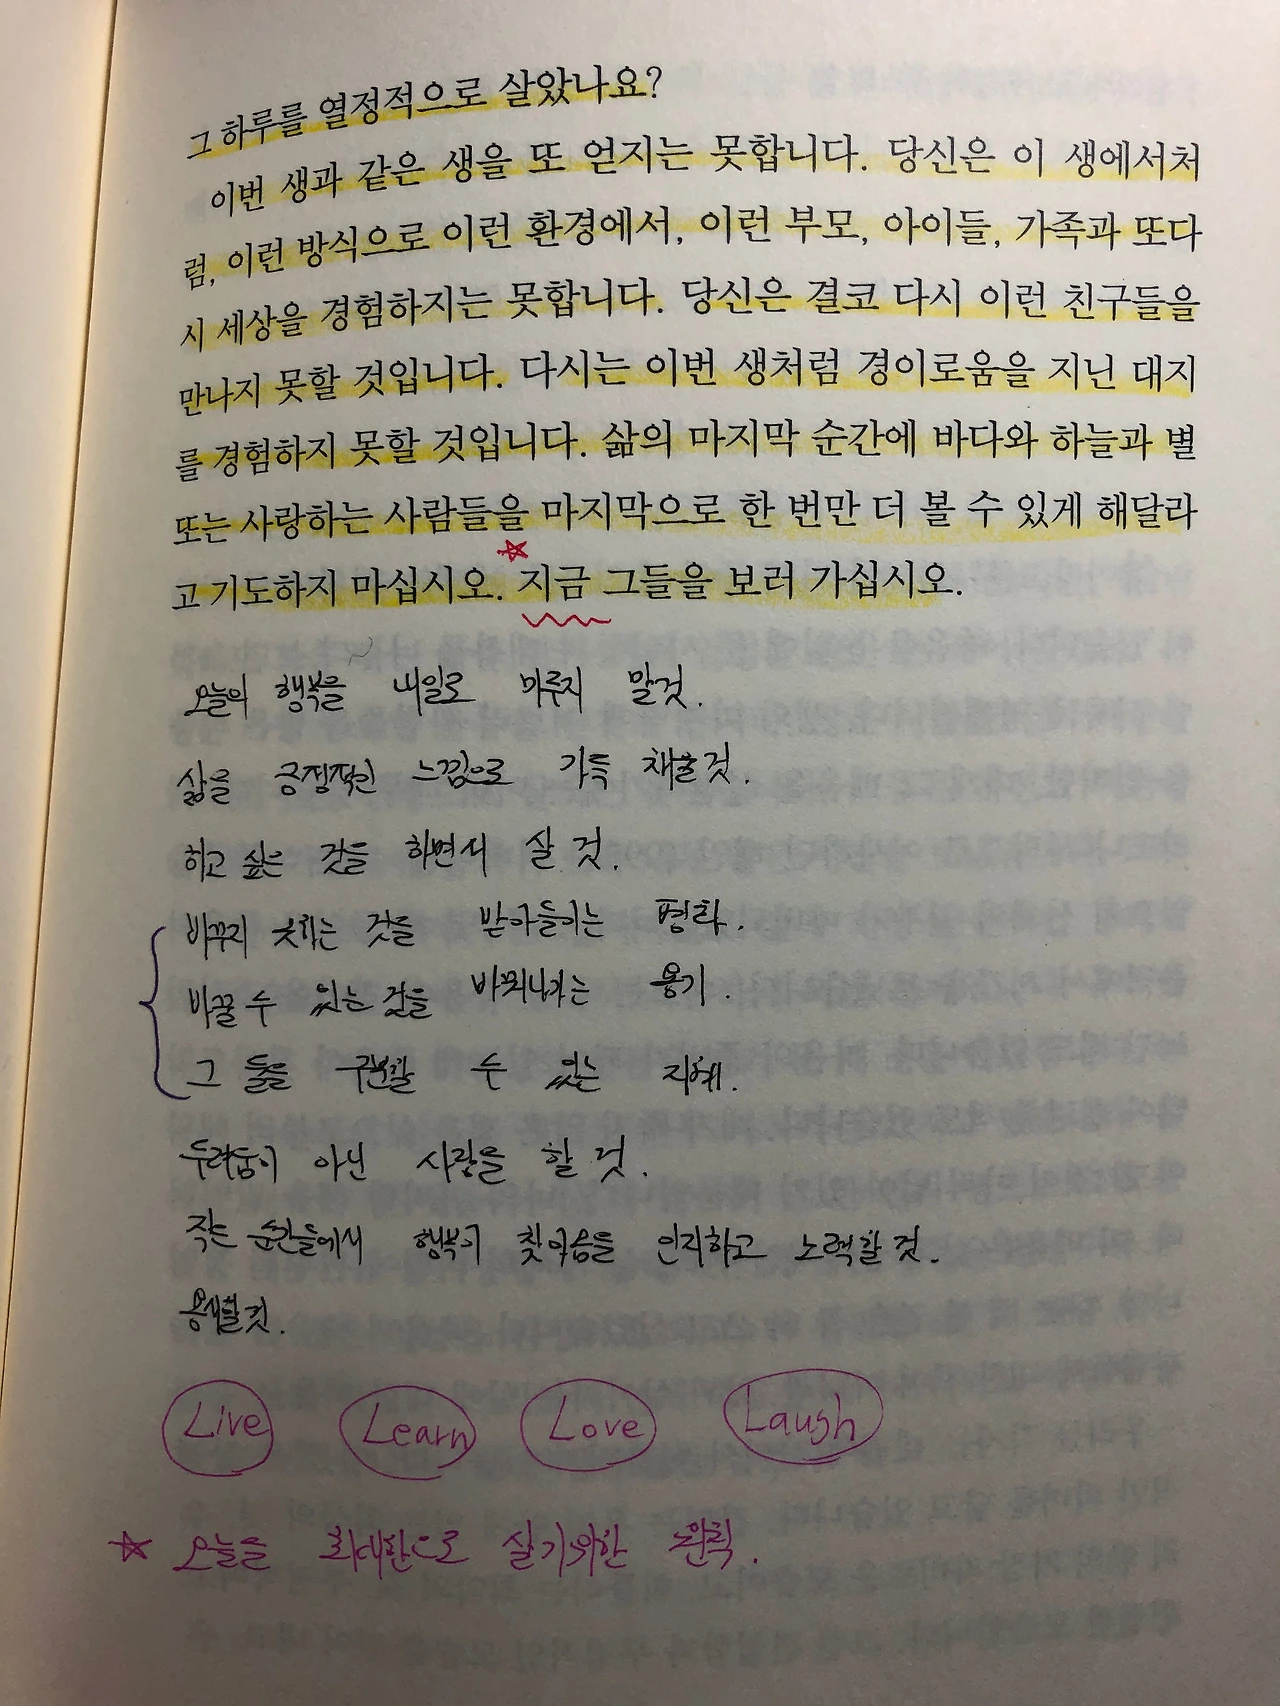 그 하루를 열정적으로 살았나요?
이번 생과 같은 생을 또 얻지는 못합니다. 당신은 이 생에서처
럼, 이런 방식으로 이런 환경에서, 이런 부모, 아이들, 가족과 또다
시 세상을 경험하지는 못합니다. 당신은 결코 다시 이런 친구들을
만나지 못할 것입니다. 다시는 이번 생처럼 경이로움을 지닌 대지
를 경험하지 못할 것입니다. 삶의 마지막 순간에 바다와 하늘과 별
또는 사랑하는 사람들을 마지막으로 한 번만 더 볼 수 있게 해달라
고 기도하지 마십시오. 지금 그들을 보러 가십시오.
오늘의 행복을 내일로 미루지 말것.
삶을 긍정적인 느낌으로 가득 채울것.
하고 싶은 것들 하면서 살 것.
바꾸지 못하는 것을 받아들이는 평화.
바꿀 수 있는 것을 바꿔나가는 용기.
그 둘을 구분할 수 있는 지혜.
두려움이 아닌 사랑을 할 것.
작은 순간들에서 행복이 찾아옴을 인지하고 노력할 것.
용서할것.
Live Learn Love Laugh
오늘을 최대한으로 살기위한 원칙.